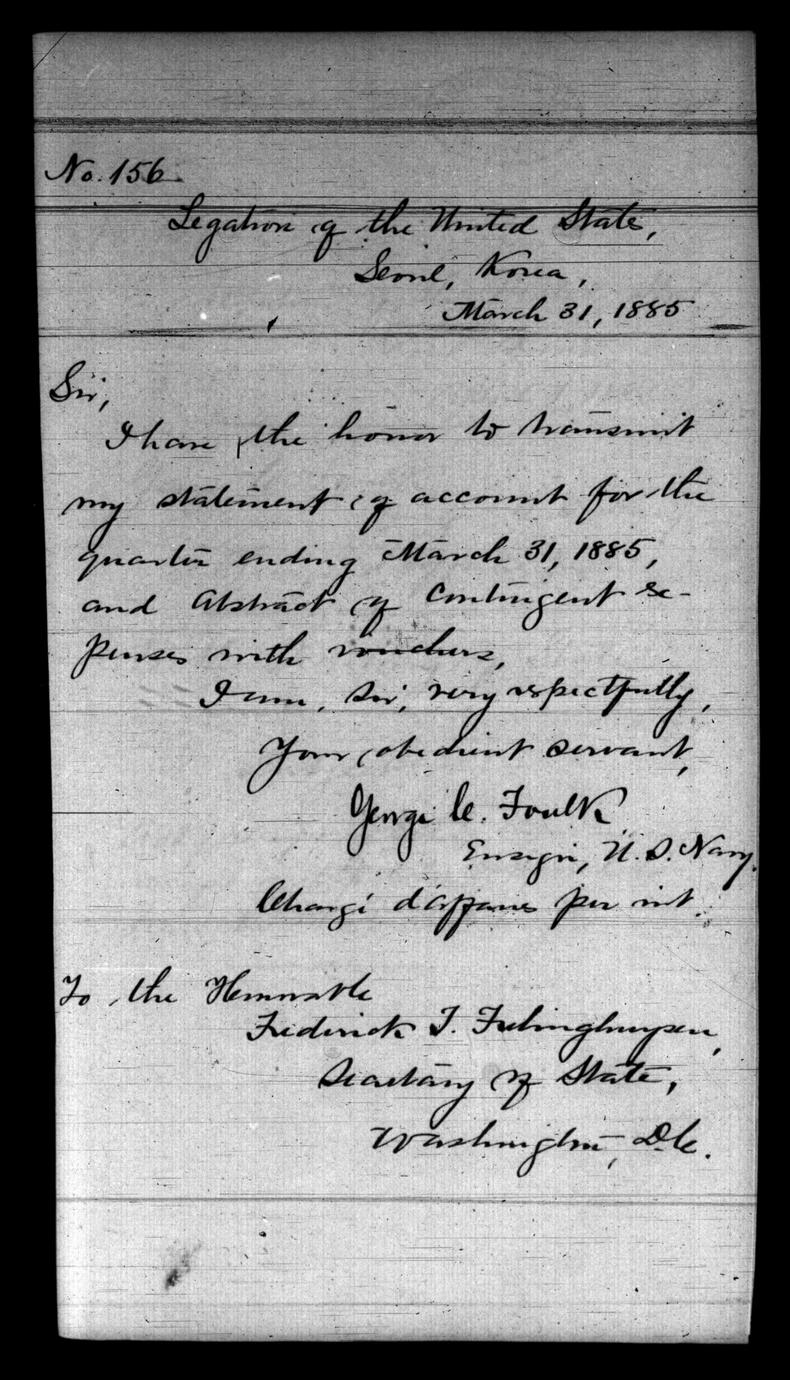 No. 156.
Legation of the United State,
Seoul, Korea,
March 31, 1885
Sir,
I have the honor to transmit
my statement of account for the
quarter ending March 31, 1885,
and abstract of contingent ex-
penses with vouchers,
I am, sir, very respectfully,
Your obedient servant,
George C. Foulk
Ensign, U. S. Navy.
Chargé d'affaires per int.
To the Honorable
Frederick T. Frelinghuysen,
Secretary of State,
Washington, D.C.